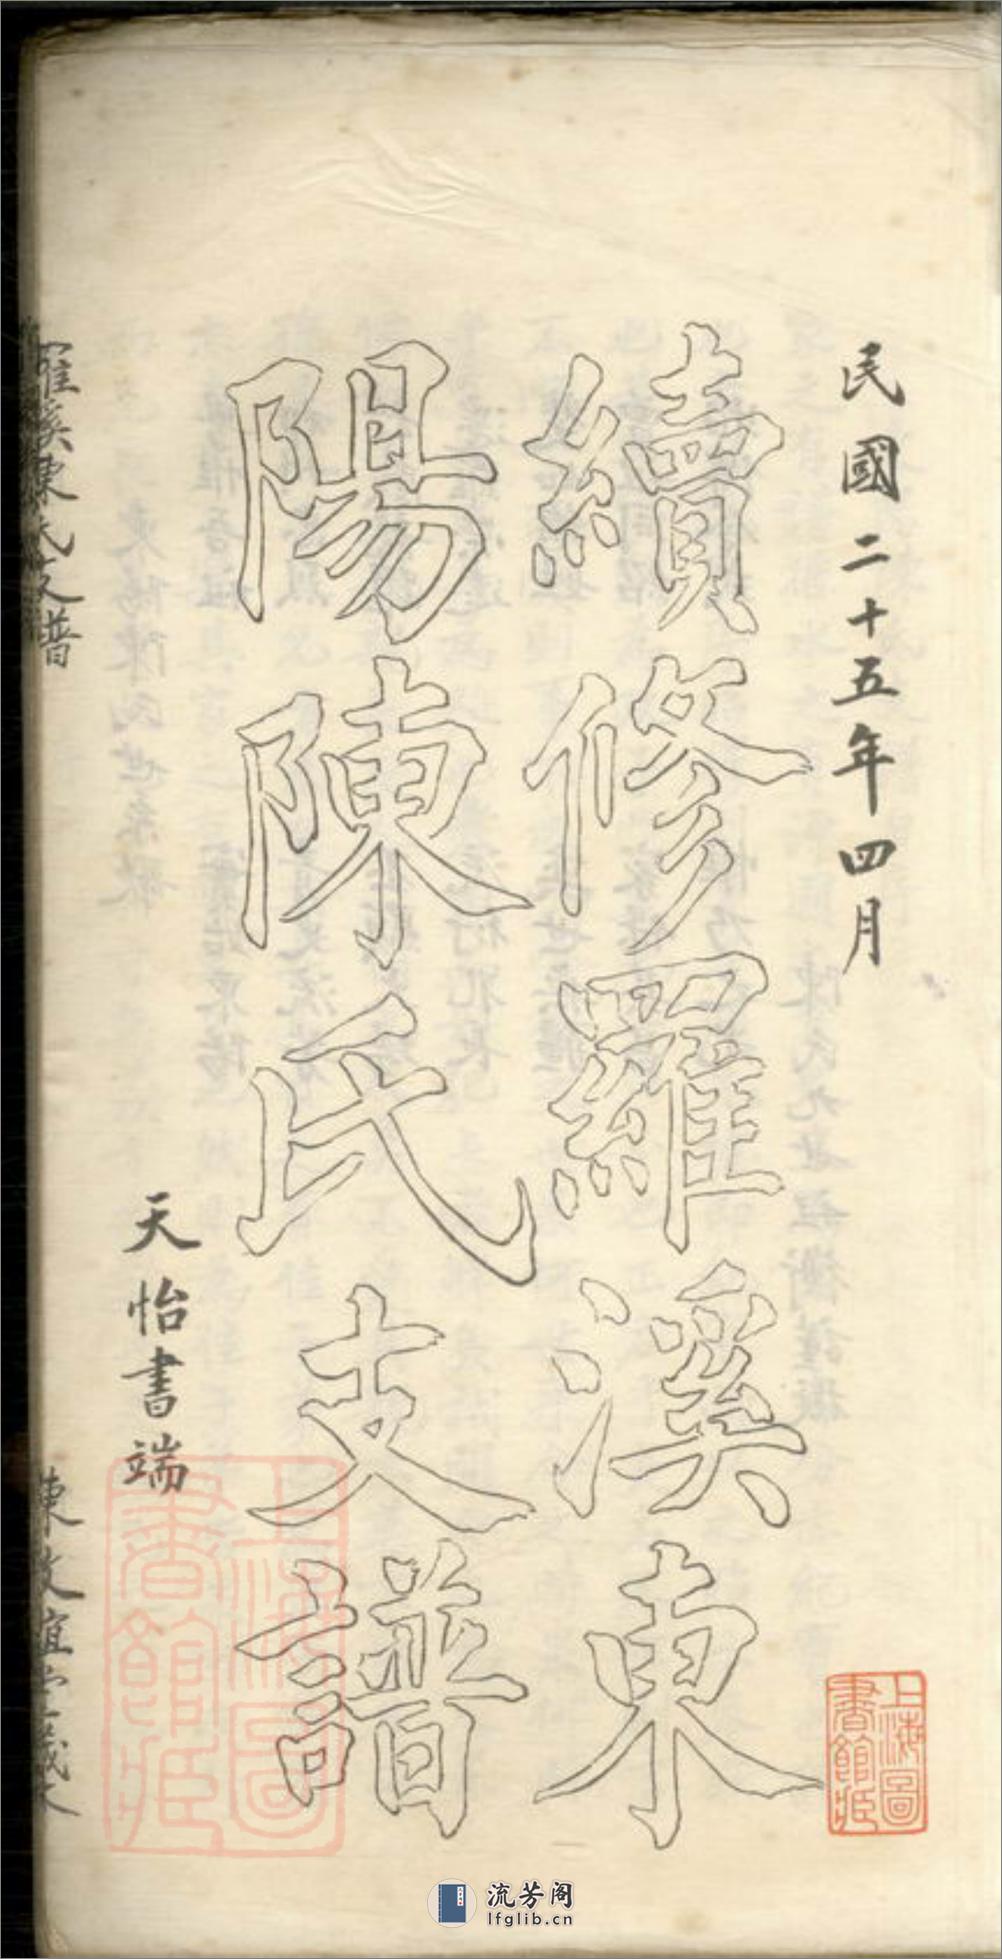 民國二十五年四月
續修羅溪東
陽陳氏支譜
天怡書端
羅溪陳氏支譜
上海圖
書館藏
上海圖
書館藏
流芳阁
lfglib.cn